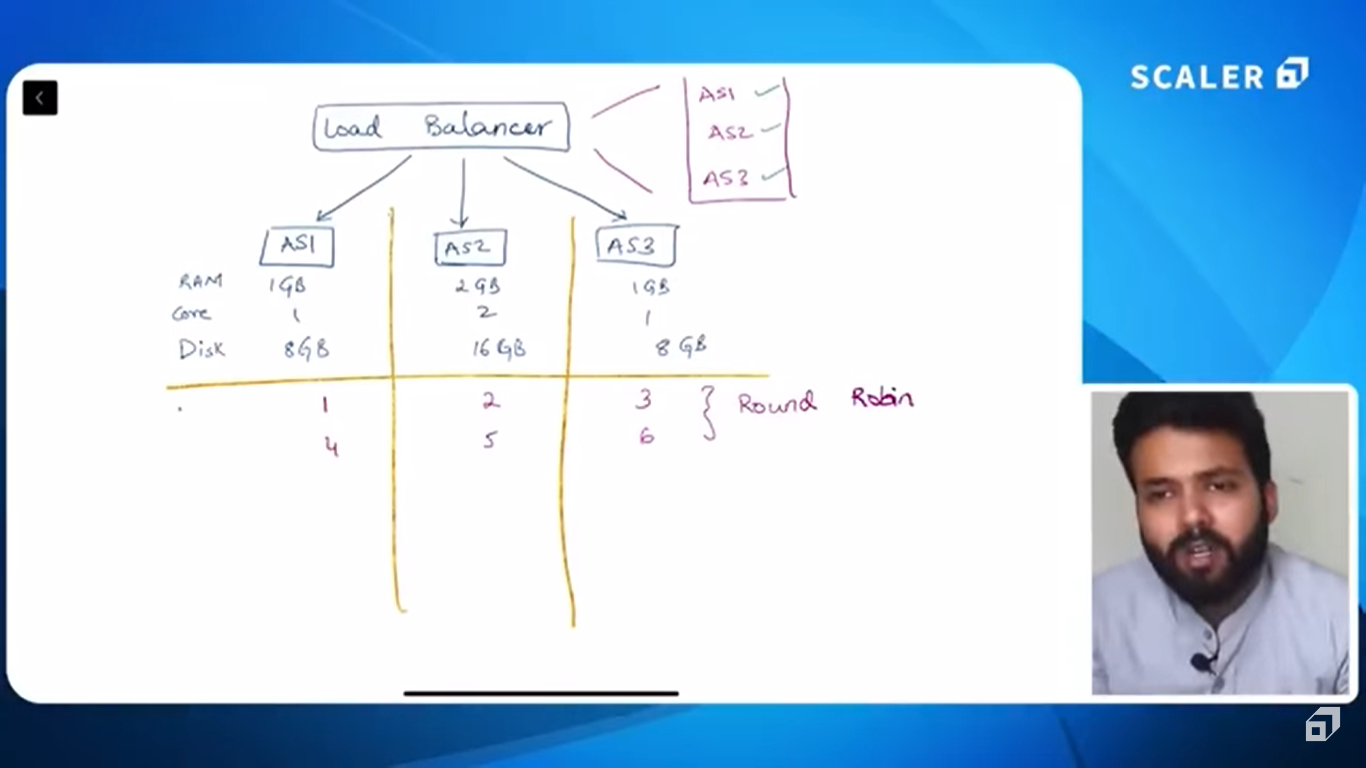 SCALER
Load Balancer
AS1
AS2
AS3
AS1 AS2 AS3
RAM 1GB 2GB 1GB
Core 1 2 1
Disk 8GB 16GB 8GB
1 2 3 Round Robin
4 5 6